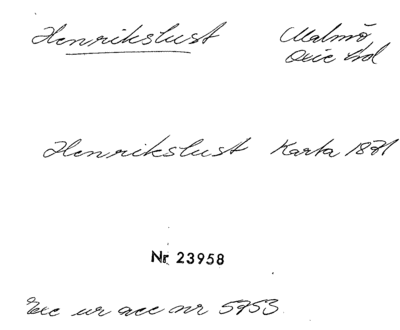 Henrikslust Malmö
Oxie hd
Henrikslust Karta 1871
Nr 23958
Exc ur acc nr 5753